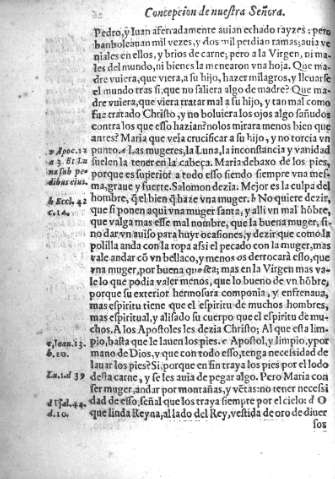 Concepcion de nuestra Señora.
Pedro, y Iuan aferuadamente auian echado rayzes: pero
banboleauan mil vezes, y dos mil perdian ramas; auia ve
niales en ellos, y brios de carne; pero a la Virgen, ni ma
les del mundo, ni bienes la menearon vna hoja. Que ma-
dre vuiera, que viera, a su hijo, hazer milagros, y lleuarse
el mundo tras si, que no saliera algo de madre? Que ma-
dre vuiera, que viera tratar mal a su hijo, y tan mal como
fue tratado Christo, y no boluiera los ojos algo sañudos
contra los que esso hazian? no los mirara menos bien que
antes? Maria que veia crucificar a su hijo, y no torcia vn
v Apoc. 12
punto. v Las mugeres, la Luna, la inconstancia y vanidad
a 3. Et Lu
suelen la tener en la cabeça. Maria debaxo de los pies,
na sub pe
porque es superior a todo esso siendo siempre vna mes-
dibus eius.
ma, graue y fuerte. Salomon dezia. Mejor es la culpa del
b Eccl. 42
hombre, q̃ el bien q̃ haze vna muger. b No quiere dezir,
c. 14.
que si ponen aqui vna muger santa, y alli vn mal hõbre,
que valga mas esse mal nombre, que la buena muger, si-
no dar vn auiso para huyr ocasiones, y dezir que como la
polilla anda con la ropa assi el pecado con la muger, mas
vale andar cõ vn bellaco, y menos os derrocará esso, que
vna muger, por buena que sea; mas en la Virgen mas va-
le lo que podia valer menos, que lo bueno de vn hõbre,
porque su exterior hermosura componia, y enfrenaua,
mas espiritu tiene que el espiritu de muchos hombres,
mas espiritual, y alisado su cuerpo que el espiritu de mu-
chos. A los Apostoles les dezia Christo; Al que esta lim-
c, Ioan. 13.
pio, basta que le lauen los pies. c Apostol, y limpio, y por
b. 10.
mano de Dios, y que con todo esso, tenga necesidad de
lauar los pies? Si, porque en fin traya los pies por el lodo
Lu. 1. d 39
desta carne, y se les auia de pegar algo. Pero Maria con
ser muger, andar por montañas, y vẽtas: no tener necessi
d Psal. 44.
dad de esso: señal que los traya siempre por el cielo: d O
d. 10.
que linda Reyna, al lado del Rey, vestida de oro de diuer
sos